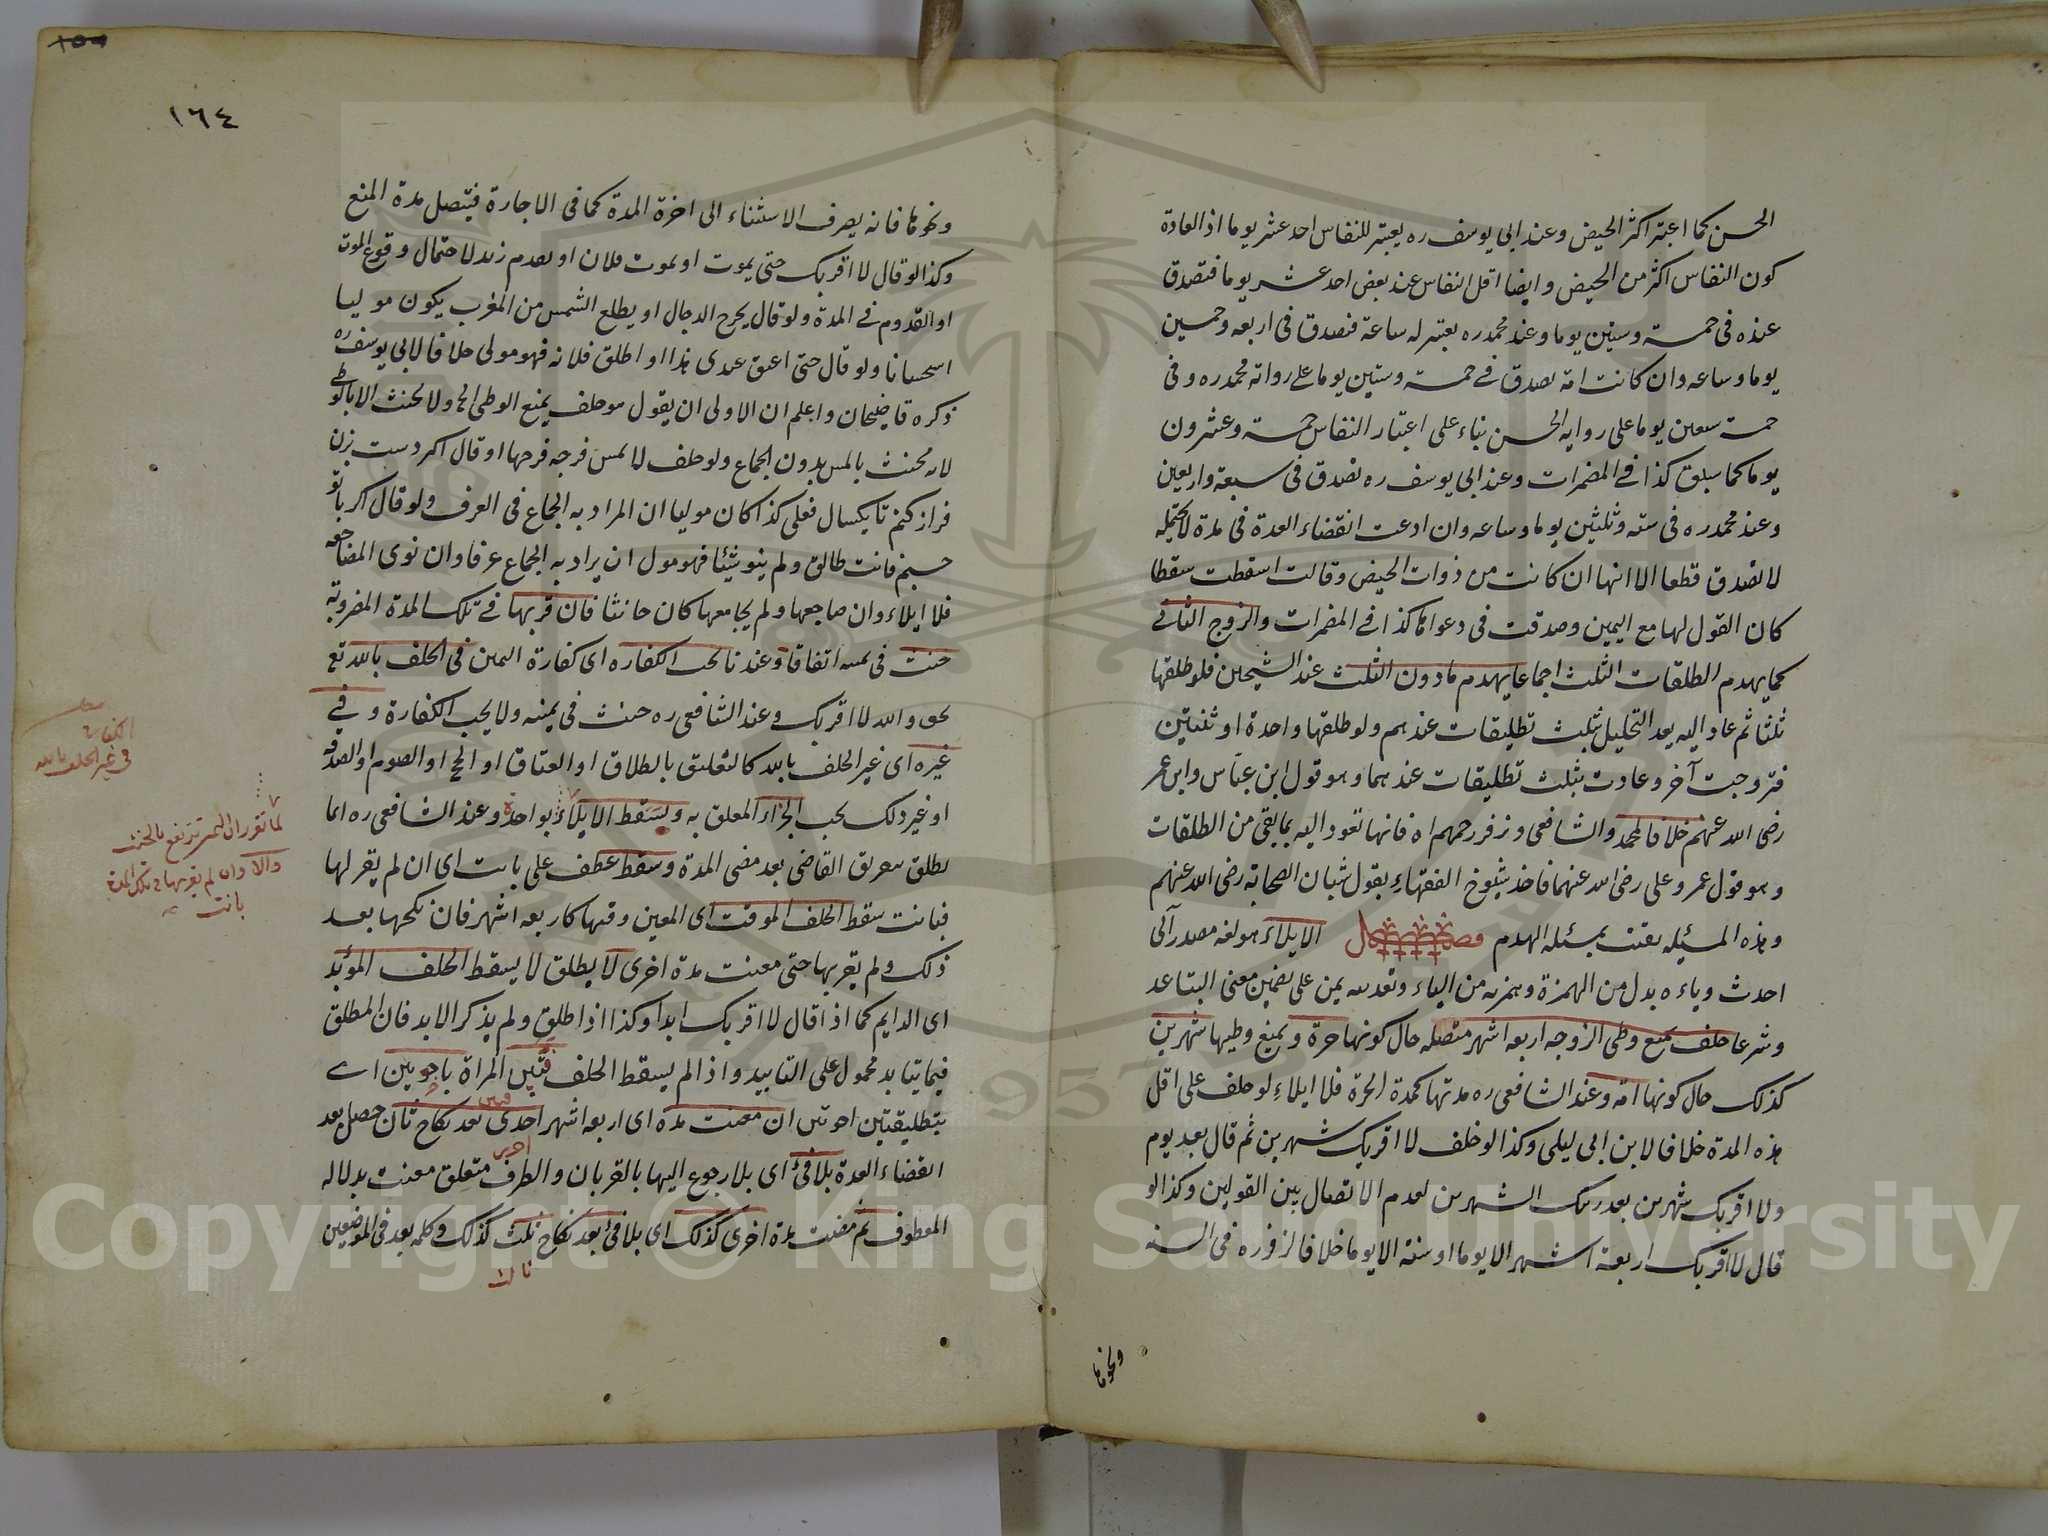 الحسن كما اعتبر اكثر الحيض وعند ابي يوسف ره يعتبر للنفاس احد عشر يوما اذ العادة
كون النفاس اكثر من الحيض وايضا اقل النفاس عند بعض احد عشر يوما فتصدق
عنده في خمسة وستين يوما وعند محمد ره يعتبر له ساعة فتصدق في اربعه وخمسين
يوما وساعه وان كانت امة تصدق في خمسة وستين يوما على رواية محمد ره وفي
خمسة سبعين يوما على رواية الحسن بناء على اعتبار النفاس خمسة وعشرون
يوما كما سبق كذا في المضمرات وعند ابي يوسف ره تصدق في سبعة واربعين
وعند محمد ره في سته وثلثين يوما وساعه وان ادعت انقضاء العدة في مدة لا يحتمله
لا تصدق قطعا الا انها ان كانت من ذوات الحيض وقالت اسقطت سقطا
كان القول لها مع اليمين وصدقت في دعواها كذا في المضمرات والزوج الثاني
كما يهدم الطلقات الثلث اجماعا يهدم مادون الثلث عند الشيخين فلو طلقها
ثلثا ثم عاد اليه بعد التحليل بثلث تطليقات عندهم ولو طلقها واحدة او ثنتين
فتزوجت آخر وعادت بثلث تطليقات عندهما وهو قول ابن عباس وابن عمر
رضى الله عنهم خلافا لمحمد والشافعى وزفر رحمهم اه فانها تعود اليه بما بقي من الطلقات
وهو قول عمر وعلى رضى الله عنهما فاخذ شيوخ الفقهاء بقول شبان الصحابة رضى الله عنهم
وهذه المسئله بمسئلة الهدم فصل الايلاء هو لغه مصدر آلى
احدث وياءه بدل من الهمزة وهمزته من الياء وتعديته بمن على تضمين معنى التباعد
وشرعا حلف يمنع وطى الزوجه اربعه اشهر متصله حال كونها حرة ويمنع وطيها شهرين
كذلك حال كونها امة وعند الشافعى ره مدتها كمدة الحرة فلا ايلاء لو حلف على اقل
هذه المدة خلافا لابن ابى ليلى وكذا لو حلف لا اقربك شهرين ثم قال بعد يوم
ولا اقربك شهرين بعد الشهرين لعدم الاتصال بين القولين وكذا لو
قال لا اقربك اربعة اشهر الا يوما او سنة الا يوما خلافا لزفر ره في السنه
ونحوها
١٦٤
ونحوها فانه يصرف الاستثناء الى اخرة المدة كما في الاجارة فيتصل مدة المنع
وكذا لو قال لا اقربك حتى يموت او يموت فلان او يقدم زيد لاحتمال وقوع الموت
او القدوم في المدة ولو قال يخرج الدجال او يطلع الشمس من المغرب يكون موليا
استحسانا ولو قال حتى اعتق عبدى هذا او اطلق فلانه فهو مولى خلافا لابي يوسف ره
ذكره قاضيخان واعلم ان الاولى ان يقول هو حلف يمنع الوطى الخ ولا يحنث الا بالوطى
لانه يحنث بالمس بدون الجماع ولو حلف لا يمس فرجه فرجها او قال اكر دست بزن
فراز كنم تا يكسال فعلى كذا كان موليا ان المراد به الجماع في العرف ولو قال اكر باتو
خسبم فانت طالق ولم ينو شيئا فهو مول ان يراد به الجماع عرفا وان نوى المضاجعه
فلا ايلاء وان ضاجعها ولم يجامعها كان حانثا فان قربها في تلك المدة المضروبة
حنث في يمينه اتفاقا وعندنا تجب الكفاره اى كفارة اليمين في الحلف بالله تع
نحو والله لا اقربك وعند الشافعى ره حنث في يمينه ولا يجب الكفارة وفي
غيره اى غير الحلف بالله كالتعليق بالطلاق او العتاق او الحج او الصوم او الصدقة
او غير ذلك يجب الجزاء المعلق به ويسقط الايلاء بواحدة وعند الشافعى ره انما
يطلق بتفريق القاضى بعد مضى المدة وسقط عطف على بانت اى ان لم يقربها
فبانت سقط الحلف الموقت اى المعين وقتها كاربعه اشهر فان نكحها بعد
ذلك ولم يقربها حتى مضت مدة اخرى لا يطلق لا يسقط الحلف المؤبد
اى الدايم كما اذا قال لا اقربك ابدا وكذا اذا اطلق ولم يذكر الابد فان المطلق
فيما يتابد محمول على التابيد واذا لم يسقط الحلف فتبين المراة باخريين اى
بتطليقتين اخريين ان مضت مدة اى اربعه اشهر اخرى بعد نكاح ثان حصل بعد
انقضاء العدة بلا فئ اى بلا رجوع اليها بالقربان والظرف متعلق مضت بدلاله
المعطوف ثم مضت مدة اخرى كذلك اى بلا فئ بعد نكاح ثلث كذلك وكلمه بعد في الموضعين
الكفارة
في غير الحلف بالله
لما تقرر ان اليمين ترتفع بالحنث
والا اى وان لم يقربها في تلك المدة
بانت
ثالث
Copyright © King Saud University
1957